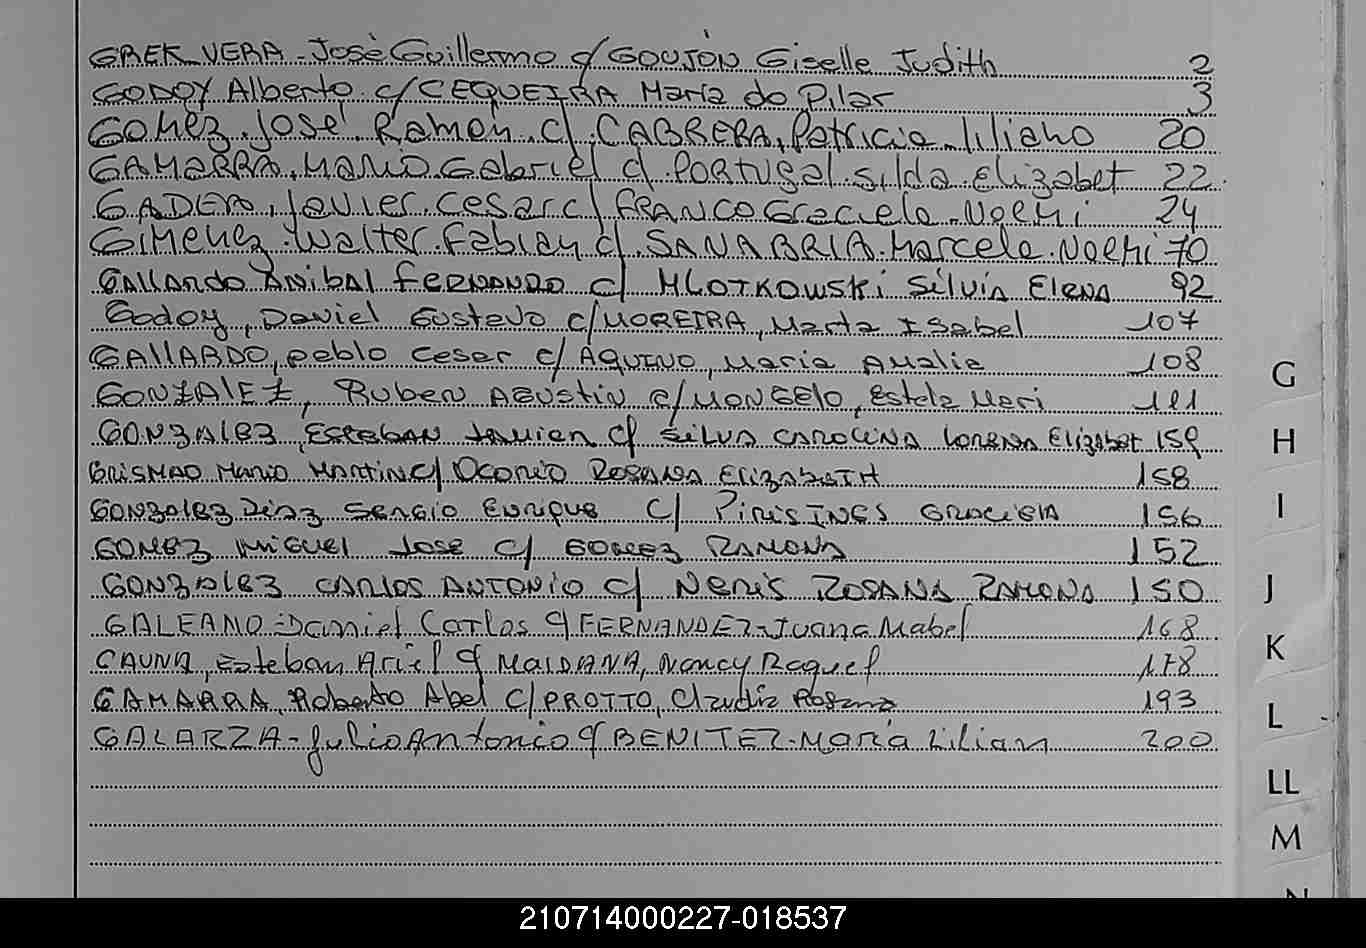 GREK VERA - José Guillermo c/ GOUJON Giselle Judith 2
GODOY Alberto c/ CEQUEIRA Maria do Pilar 3
GOMez, José Ramon, c/, CABRERA, Patricia Liliana 20
GAMARRA, MARIO Gabriel c/. PORTUGAL. Silda. Elizabet 22
GADEA, Javier. Cesar c/ FRANCO Graciela. Noemi 24
GiMenez. Walter. Fabian c/. SANABRIA. Marcela. Noemi 70
GAllARdo ANibAl FERNANDO c/ MLOTKOWSKi SilviA ElenA 92
Godoy, Daniel Gustavo c/ MOREIRA, Marta ISabel 107
GAllARDO, pablo Cesar c/ AQUINO, Maria Amalia 108
GONZALEZ, Ruben AGUStin c/ MONGELO, Estela Mari 111
GONZALEZ, ESTEBAN JAVIER c/ SILVA CAROLINA LORENA Elizabet 159
GRISMAO MARIO MARTIN c/ OCORIO ROSANA ELIZABETH 158
GONZALEZ DIAZ SERGIO Enrique c/ PIRIS INES GRACIELA 156
GOMEZ MIGUEL JOSE c/ GOMEZ RAMONA 152
GONZALEZ CARLOS ANTONIO c/ NERIS ROSANA RAMONA 150
GALEANO - Daniel Carlos c/ FERNANDEZ - Juana Mabel 168
CAUNA, Esteban Ariel c/ MAIDANA, Nancy Raquel 178
GAMARRA, Roberto Abel c/ PROTTO, Claudia Rosana 193
GALARZA - Julio Antonio c/ BENITEZ - Maria Lilian 200
G
H
I
J
K
L
LL
M
N
210714000227-018537